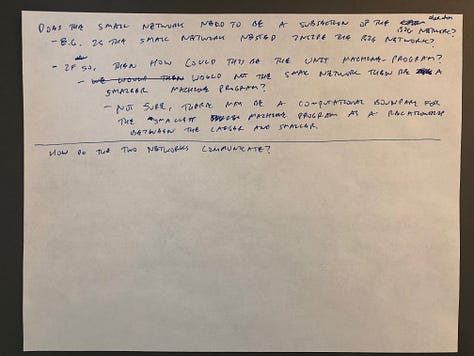 DOES THE SMALL NETWORK NEED TO BE A SUBSECTION OF THE BIG NETWORK?
- E.G. IS THE SMALL NETWORK NESTED INSIDE THE BIG NETWORK?
- IF SO, THEN HOW COULD THIS BE THE UNIT MACHINE-PROGRAM?
- WE WOULD THEN WOULD NOT THE SMALL NETWORK THEN BE A
SMALLER MACHINE PROGRAM?
- NOT SURE, THERE MAY BE A COMPUTATIONAL BOUNDARY FOR
THE SMALLEST MACHINE PROGRAM AS A RELATIONSHIP
BETWEEN THE LARGER AND SMALLER.
HOW DO THE TWO NETWORKS COMMUNICATE?